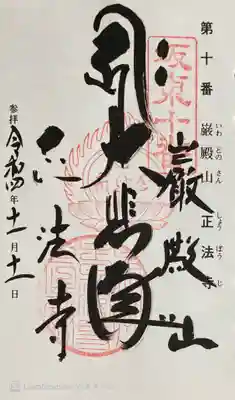 第十番 巌殿山 正法寺
いわ どの さん しょう ぼう じ
坂東十番
巌殿山
大悲閣
正法寺
参拝 令和四年十一月十一日